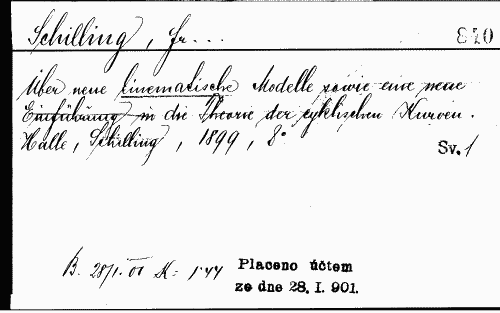 Schilling, Fr...
840
Über neue kinematische Modelle sowie eine neue
Einführung in die Theorie der cyklischen Kurven.
Halle, Schilling, 1899, 8°
Sv. 1
B. 28/I. 01 K: 1·44
Placeno účtem
ze dne 28. I. 901.